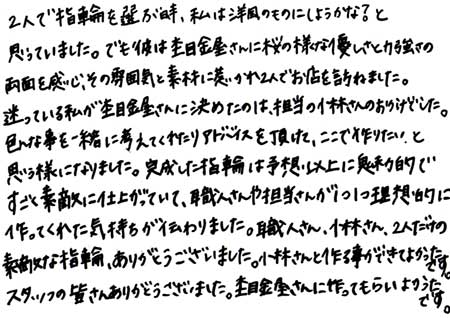 2人で指輪を選ぶ時、私は洋風のものにしようかな？と
思っていました。でも彼は杢目金屋さんに桜の様な優しさと力強さの
両面を感じ、その雰囲気と素材に惹かれ2人でお店を訪ねました。
迷っている私が杢目金屋さんに決めたのは、担当の小林さんのおかげでした。
色んな事を一緒に考えてくれたりアドバイスを頂けて、ここで作りたい、と
思う様になりました。完成した指輪は予想以上に魅力的で
すごく素敵に仕上がっていて、職人さんや担当さんが1つ1つ理想的に
作ってくれた気持ちが伝わりました。職人さん、小林さん、2人だけの
素敵な指輪、ありがとうございました。小林さんと作る事ができてよかったです。
スタッフの皆さんありがとうございました。杢目金屋さんに作ってもらいよかったです。